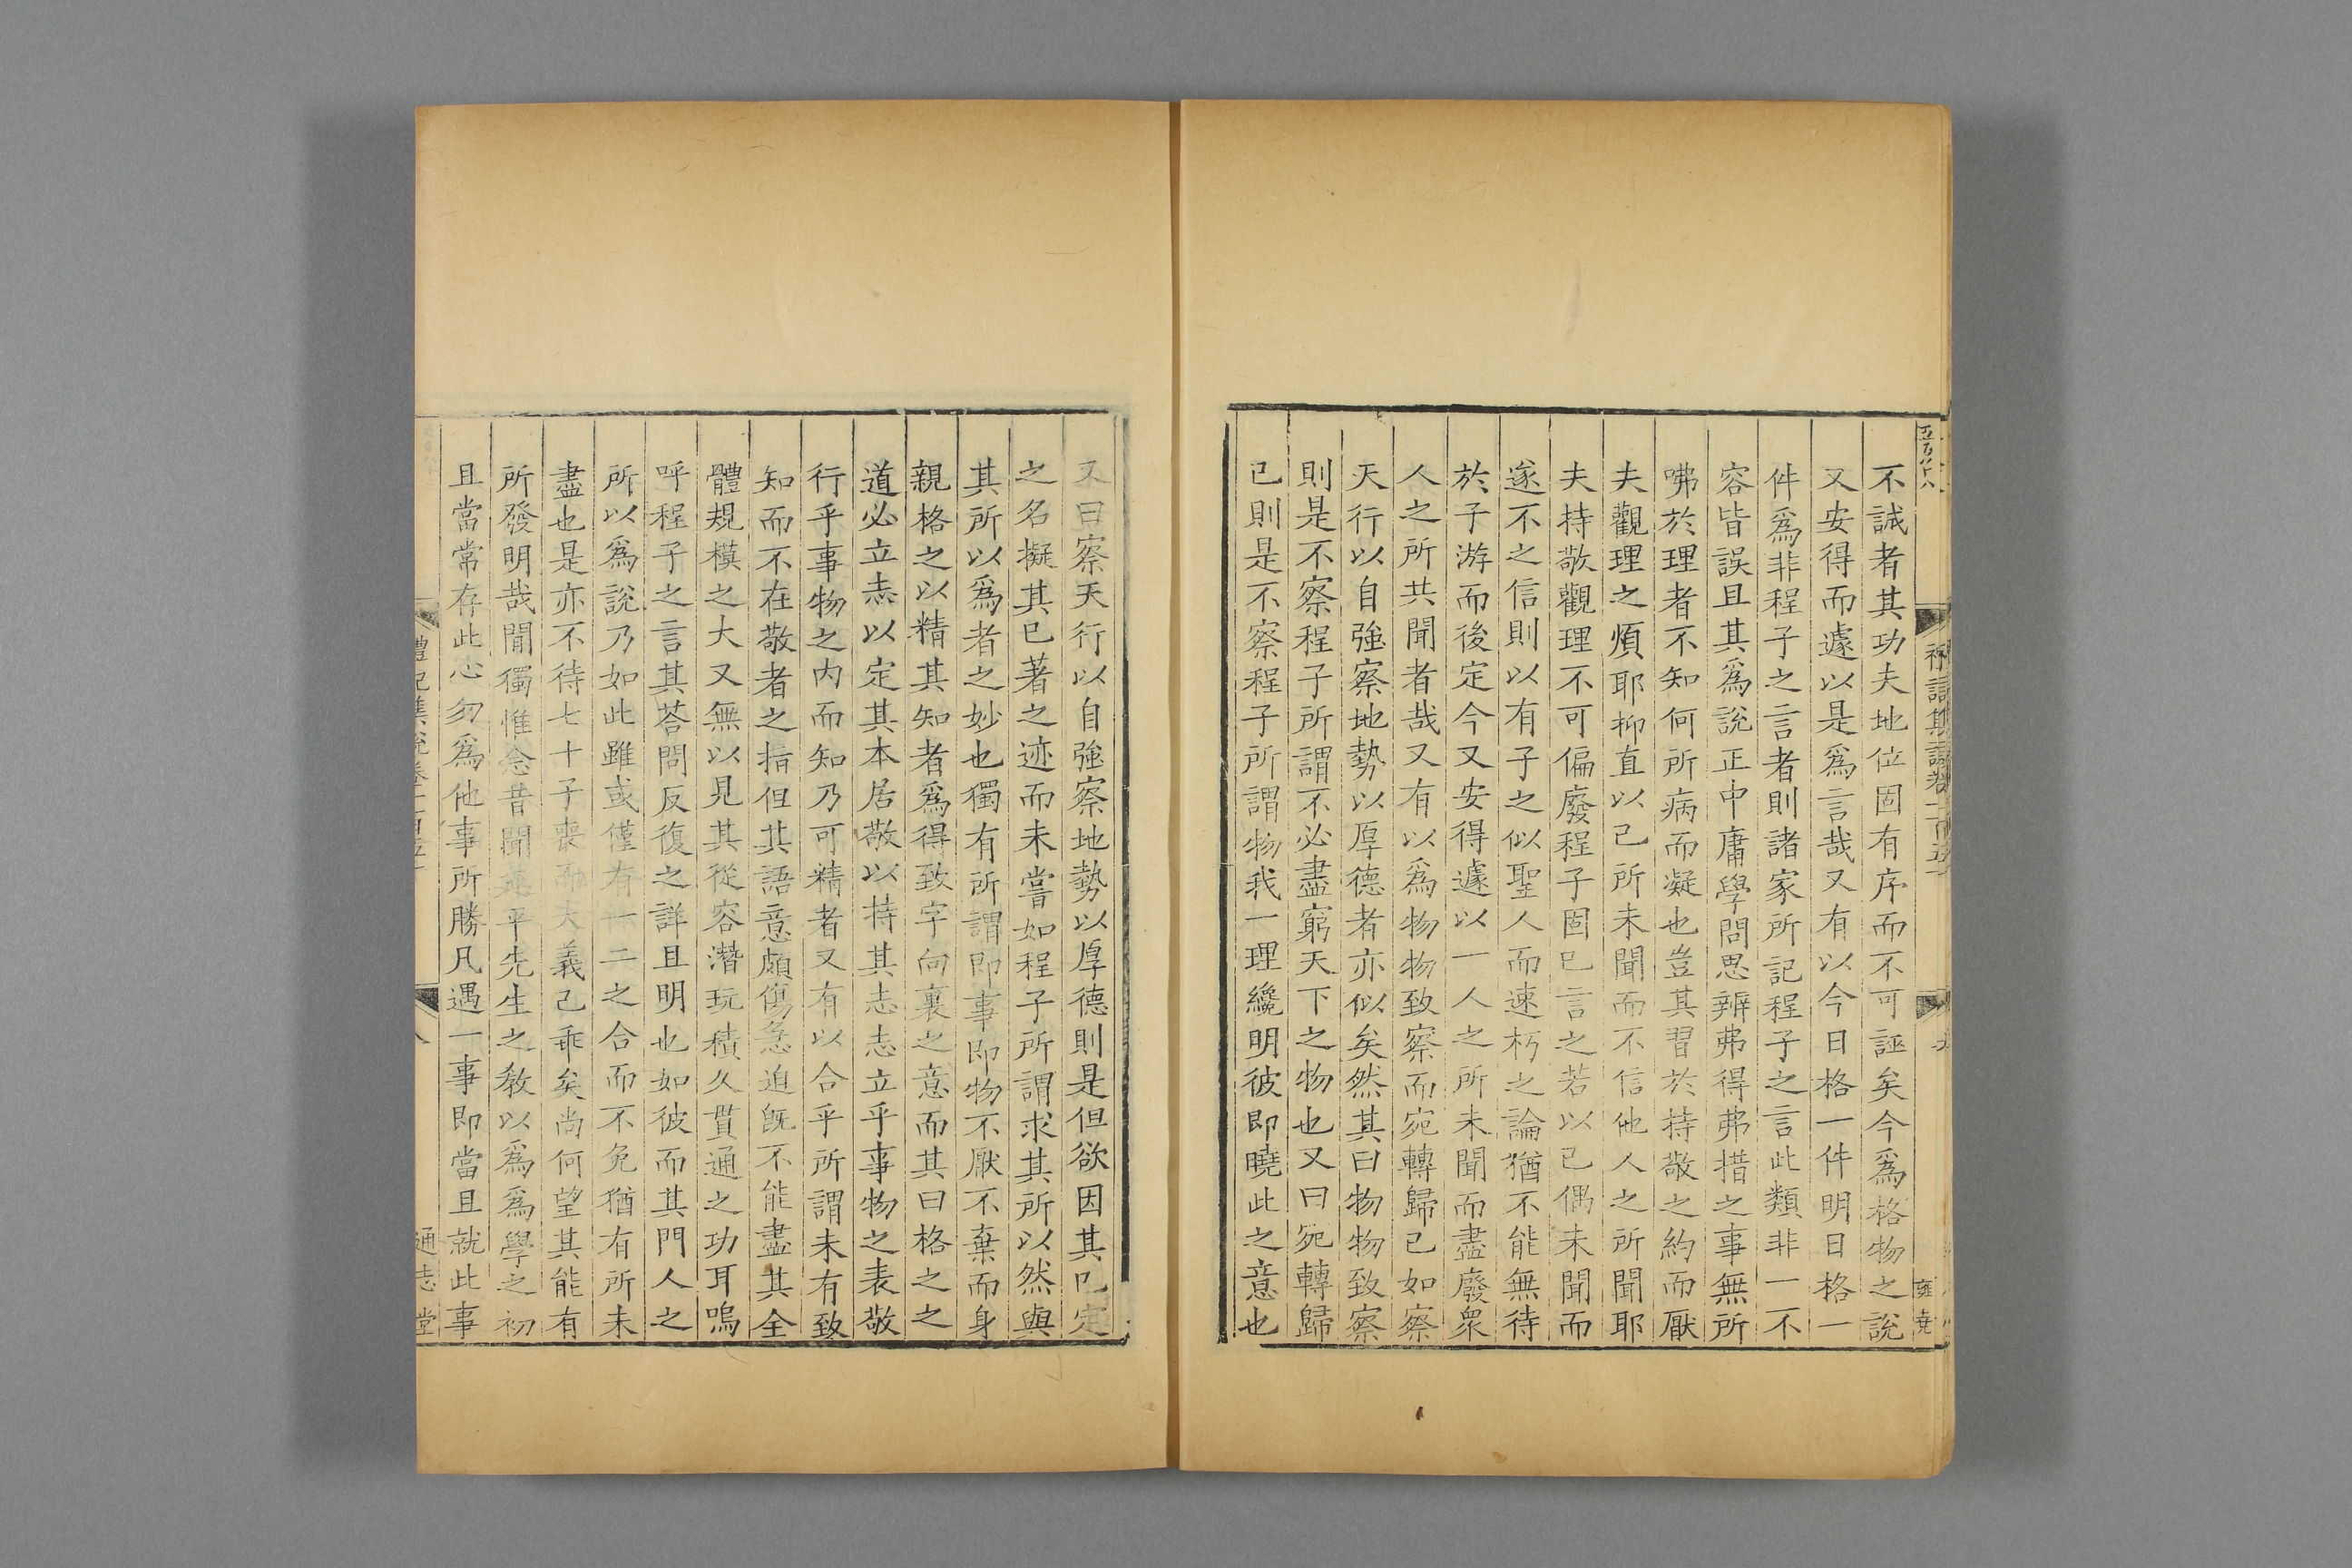 不誠者其功夫地位固有序而不可誣矣今爲格物之說
又安得而遽以是爲言哉又有以今日格一件明日格一
件爲非程子之言者則諸家所記程子之言此類非一不
容皆誤且其爲說正中庸學問思辨弗得弗措之事無所
咈於理者不知何所病而凝也豈其習於持敬之約而厭
夫觀理之煩耶抑直以己所未聞而不信他人之所聞耶
夫持敬觀理不可偏廢程子固已言之若以己偶未聞而
遂不之信則以有子之似聖人而速朽之論猶不能無待
於子游而後定今又安得遽以一人之所未聞而盡廢衆
人之所共聞者哉又有以爲物物致察而宛轉歸己如察
天行以自強察地勢以厚德者亦似矣然其曰物物致察
則是不察程子所謂不必盡窮天下之物也又曰宛轉歸
己則是不察程子所謂物我一理纔明彼即曉此之意也
又曰察天行以自強察地勢以厚德則是但欲因其已定
之名擬其已著之迹而未嘗如程子所謂求其所以然與
其所以爲者之妙也獨有所謂即事即物不厭不棄而身
親格之以精其知者爲得致字向裏之意而其曰格之之
道必立志以定其本居敬以持其志志立乎事物之表敬
行乎事物之内而知乃可精者又有以合乎所謂未有致
知而不在敬者之指但其語意頗傷急迫旣不能盡其全
體規模之大又無以見其從容潛玩積久貫通之功耳嗚
呼程子之言其荅問反復之詳且明也如彼而其門人之
所以爲說乃如此雖或僅有一二之合而不免猶有所未
盡也是亦不待七十子喪而大義已乖矣尚何望其能有
所發明哉間獨惟念昔聞延平先生之敎以爲爲學之初
且當常存此心勿爲他事所勝凡遇一事即當且就此事
禮記集說卷一百四十
八
通志堂